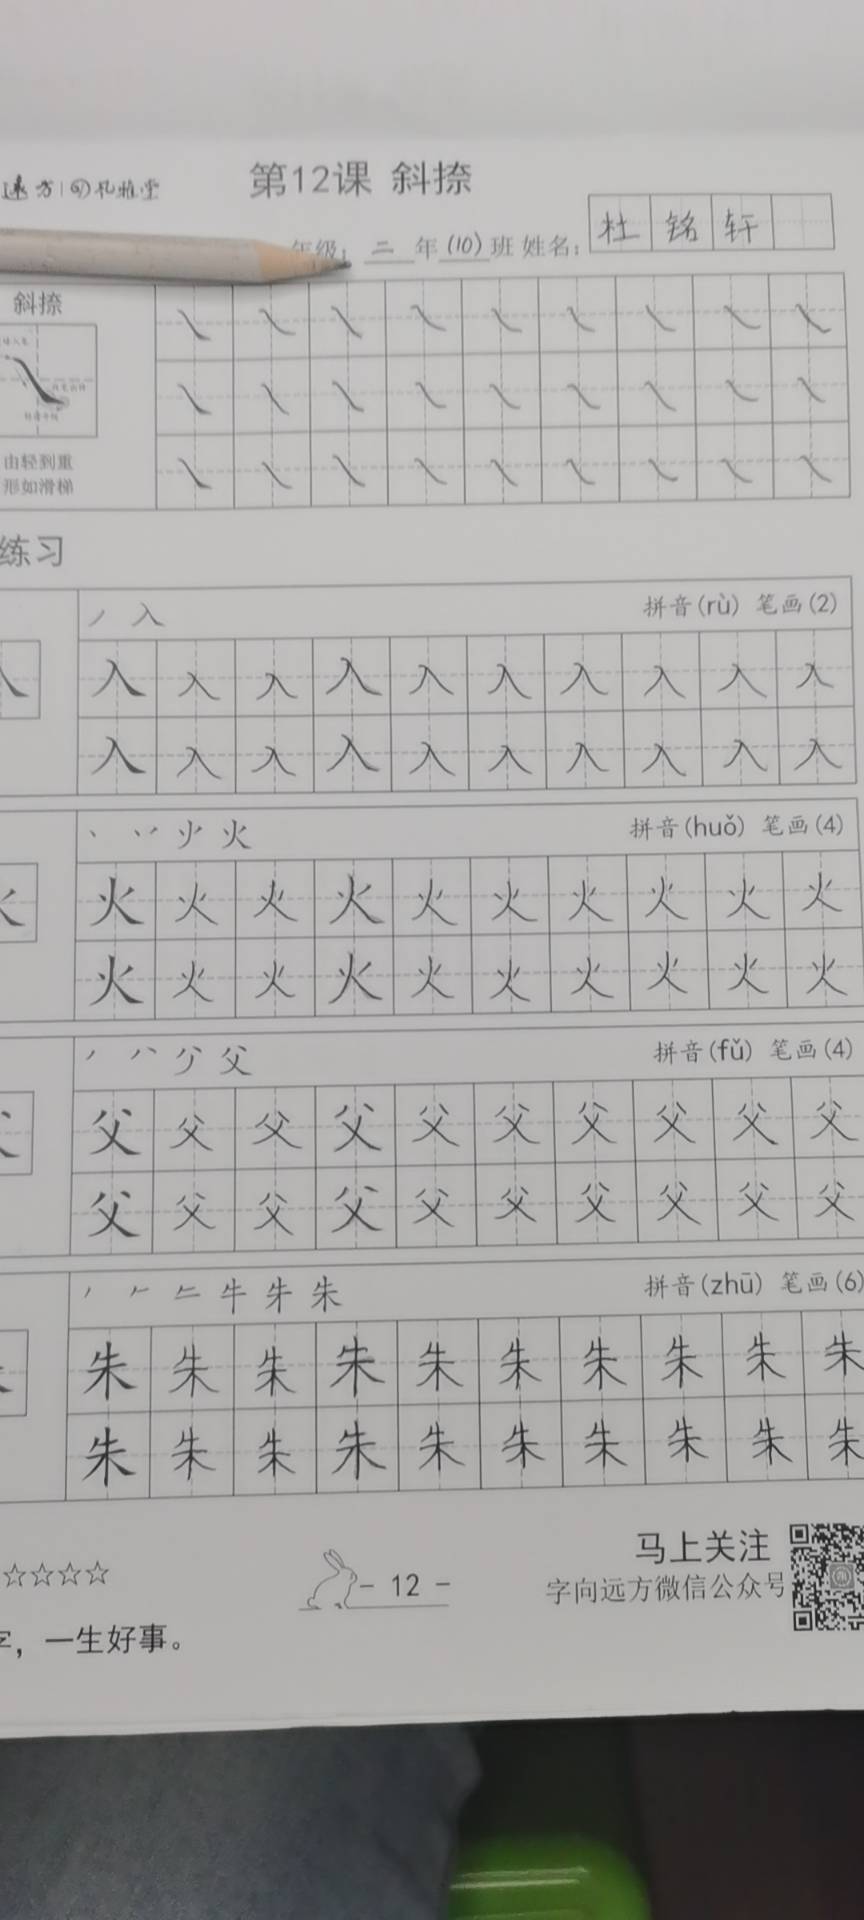 第12课 斜捺
年级: 二 年 (10) 班 姓名: 杜铭轩
斜捺
由轻到重
形如滑梯
练习
丿 入 拼音(rù) 笔画(2)
入 入 入 入 入 入 入 入 入 入
入 入 入 入 入 入 入 入 入 入
火 拼音(huǒ) 笔画(4)
火 火 火 火 火 火 火 火 火 火
火 火 火 火 火 火 火 火 火 火
父 拼音(fǔ) 笔画(4)
父 父 父 父 父 父 父 父 父 父
父 父 父 父 父 父 父 父 父 父
牛 朱 拼音(zhū) 笔画(6)
朱 朱 朱 朱 朱 朱 朱 朱 朱 朱
朱 朱 朱 朱 朱 朱 朱 朱 朱 朱
☆☆☆☆
- 12 -
马上关注
字向远方微信公众号
字，一生好事。